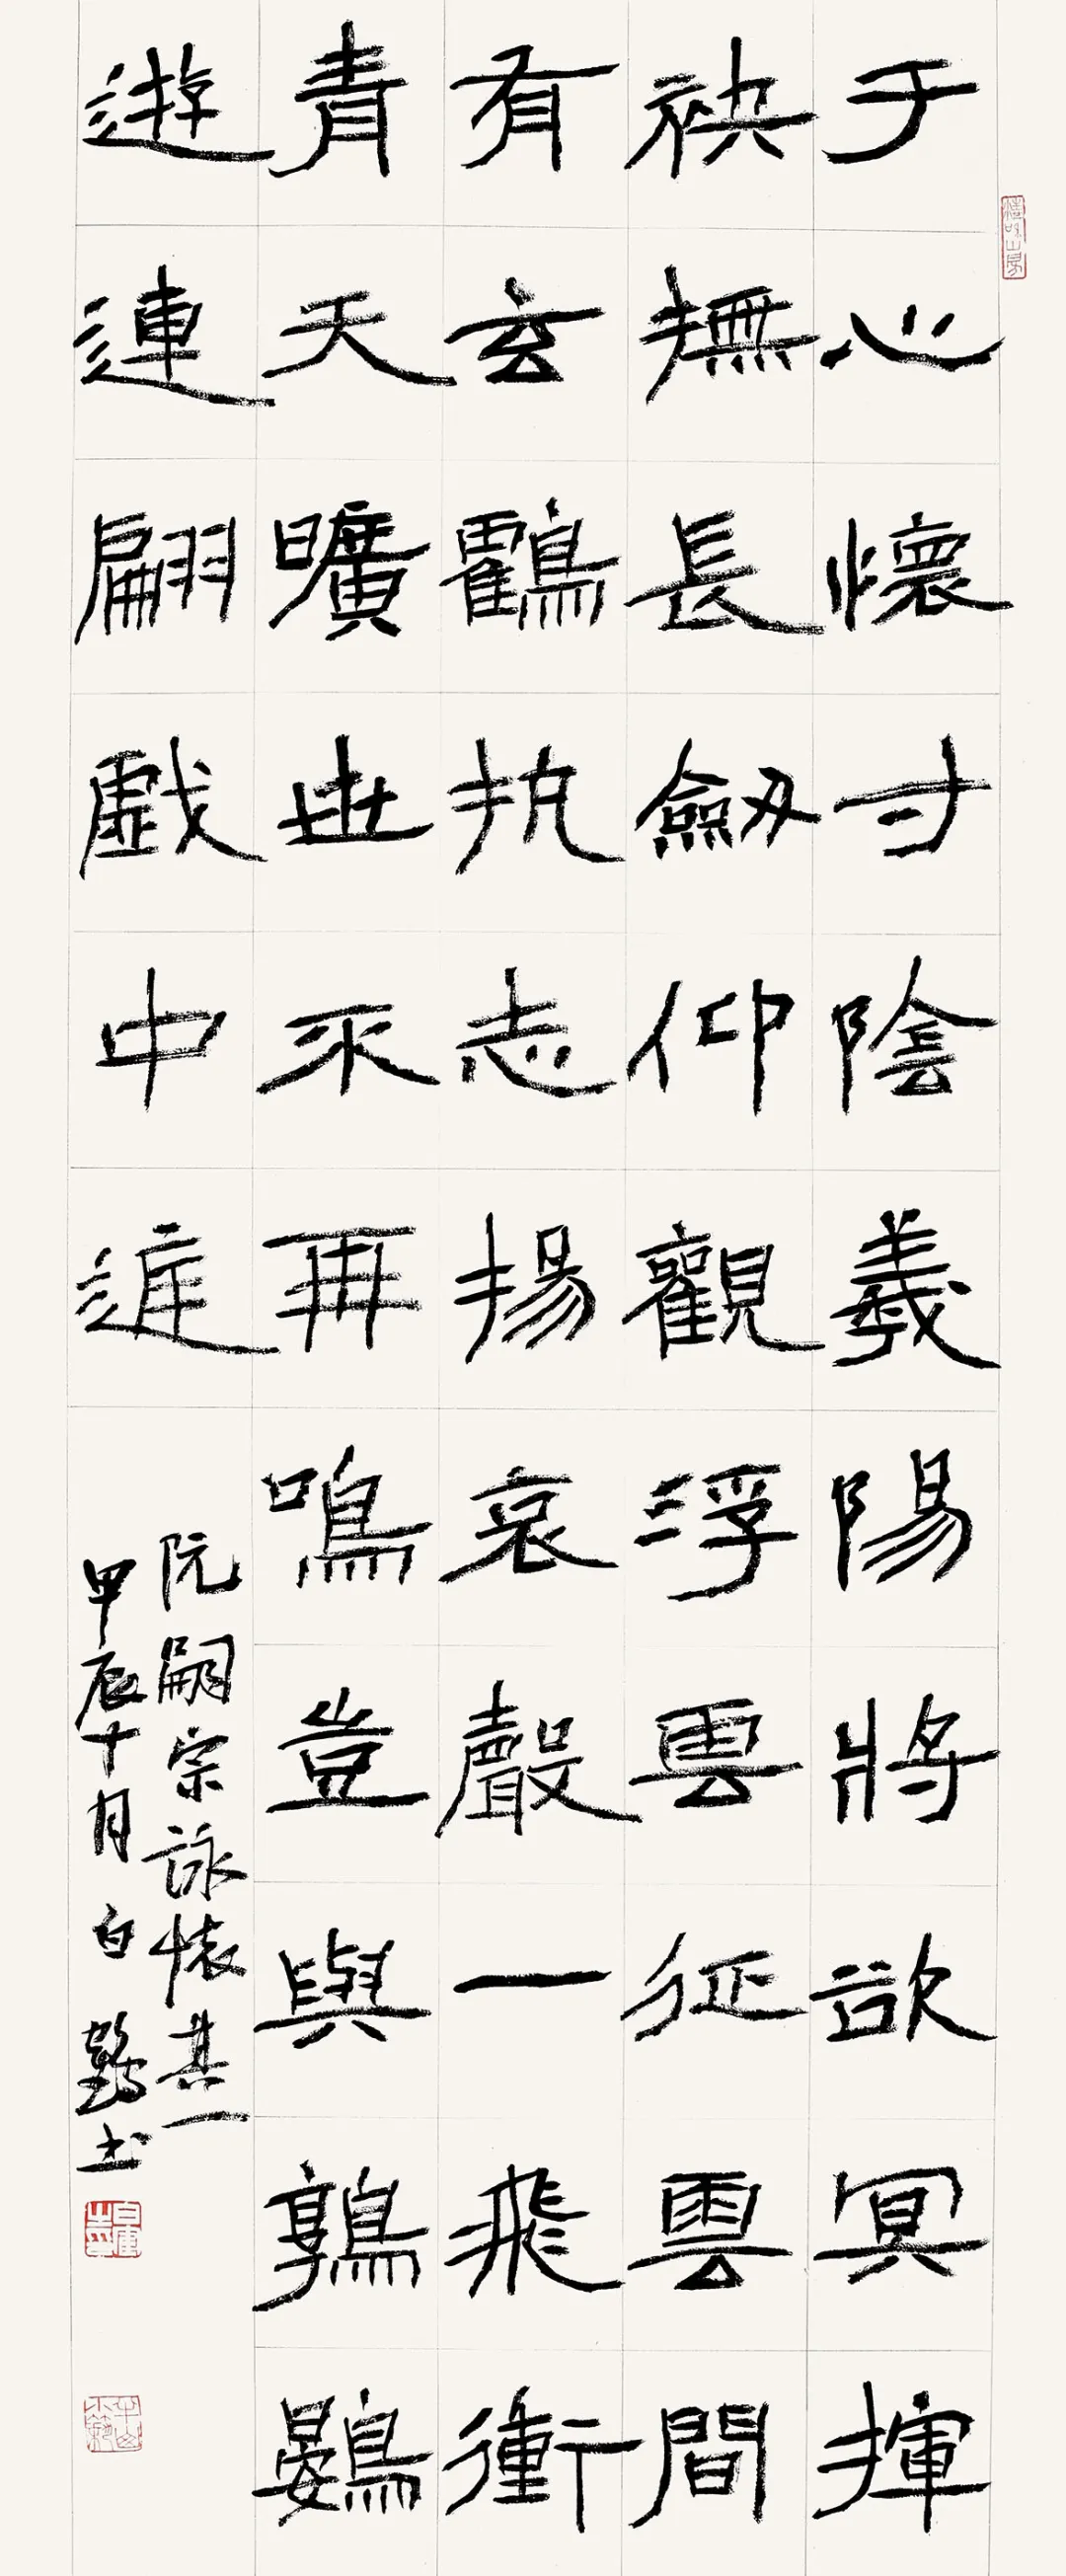 于心懷寸陰羲陽將欲冥揮
袂撫長劔仰觀浮雲征雲間
有玄鶴抗志揚哀聲一飛衝
青天曠世不再鳴豈與鶉鷃
遊連翩戲中庭
阮嗣宗詠懷其一
甲辰十月白鶴书